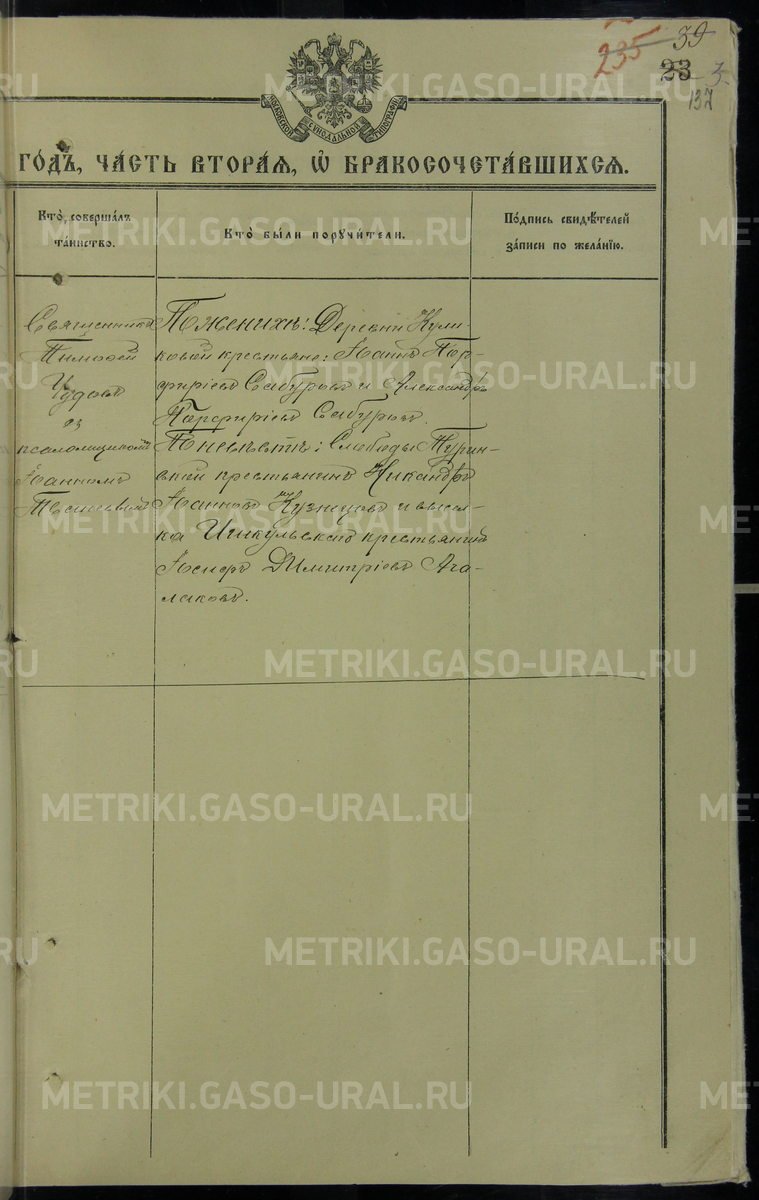 235
39
23
3
137
МОСКОВСКОЙ СѴНОДАЛЬНОЙ ТИПОГРАФІИ
ГО́ДЪ, ЧА́СТЬ ВТОРА́Я, Ѡ҆ БРАКОСОЧЕТА́ВШИХСЯ.
Кто̀ соверша́лъ
та́инство.
Кто̀ бы́ли порꙋчи́тели.
По́дпись свидѣ́телей
за́писи по жела́нїю.
Священникъ
Тимофей
Чудовъ
съ
псаломщикомъ
Іоанномъ
По женихѣ: Деревни Кули-
ковой крестьяне: Іоаннъ Пор-
фиріевъ Сабуровъ и Александръ
Порфиріевъ Сабуровъ.
По невѣстѣ: Слободы Турин-
ской крестьянинъ Никандръ
Іоанновъ Кузнецовъ и высел-
ка Ишкульскаго крестьянинъ
Іосифъ Димитріевъ Ага-
лаковъ.
METRIKI.GASO-URAL.RU